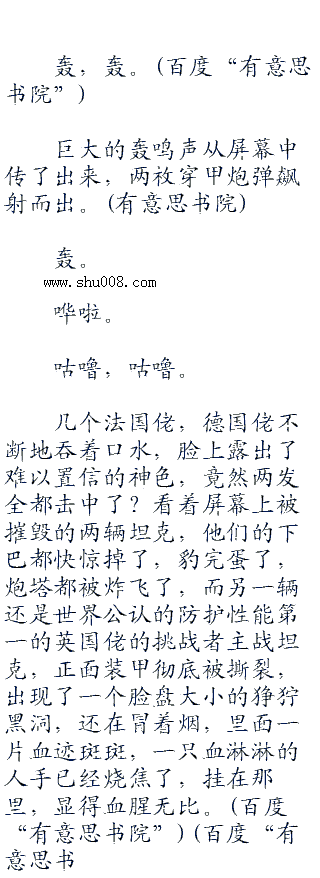 轰，轰。(百度“有意思
书院”)
巨大的轰鸣声从屏幕中
传了出来，两枚穿甲炮弹飙
射而出。(有意思书院)
轰。
www.shu008.com
哗啦。
咕噜，咕噜。
几个法国佬，德国佬不
断地吞着口水，脸上露出了
难以置信的神色，竟然两发
全都击中了？看着屏幕上被
摧毁的两辆坦克，他们的下
巴都快惊掉了，豹完蛋了，
炮塔都被炸飞了，而另一辆
还是世界公认的防护性能第
一的英国佬的挑战者主战坦
克，正面装甲彻底被撕裂，
出现了一个脸盘大小的狰狞
黑洞，还在冒着烟，里面一
片血迹斑斑，一只血淋淋的
人手已经烧焦了，挂在那
里，显得血腥无比。(百度
“有意思书院”)(百度“有
意思书